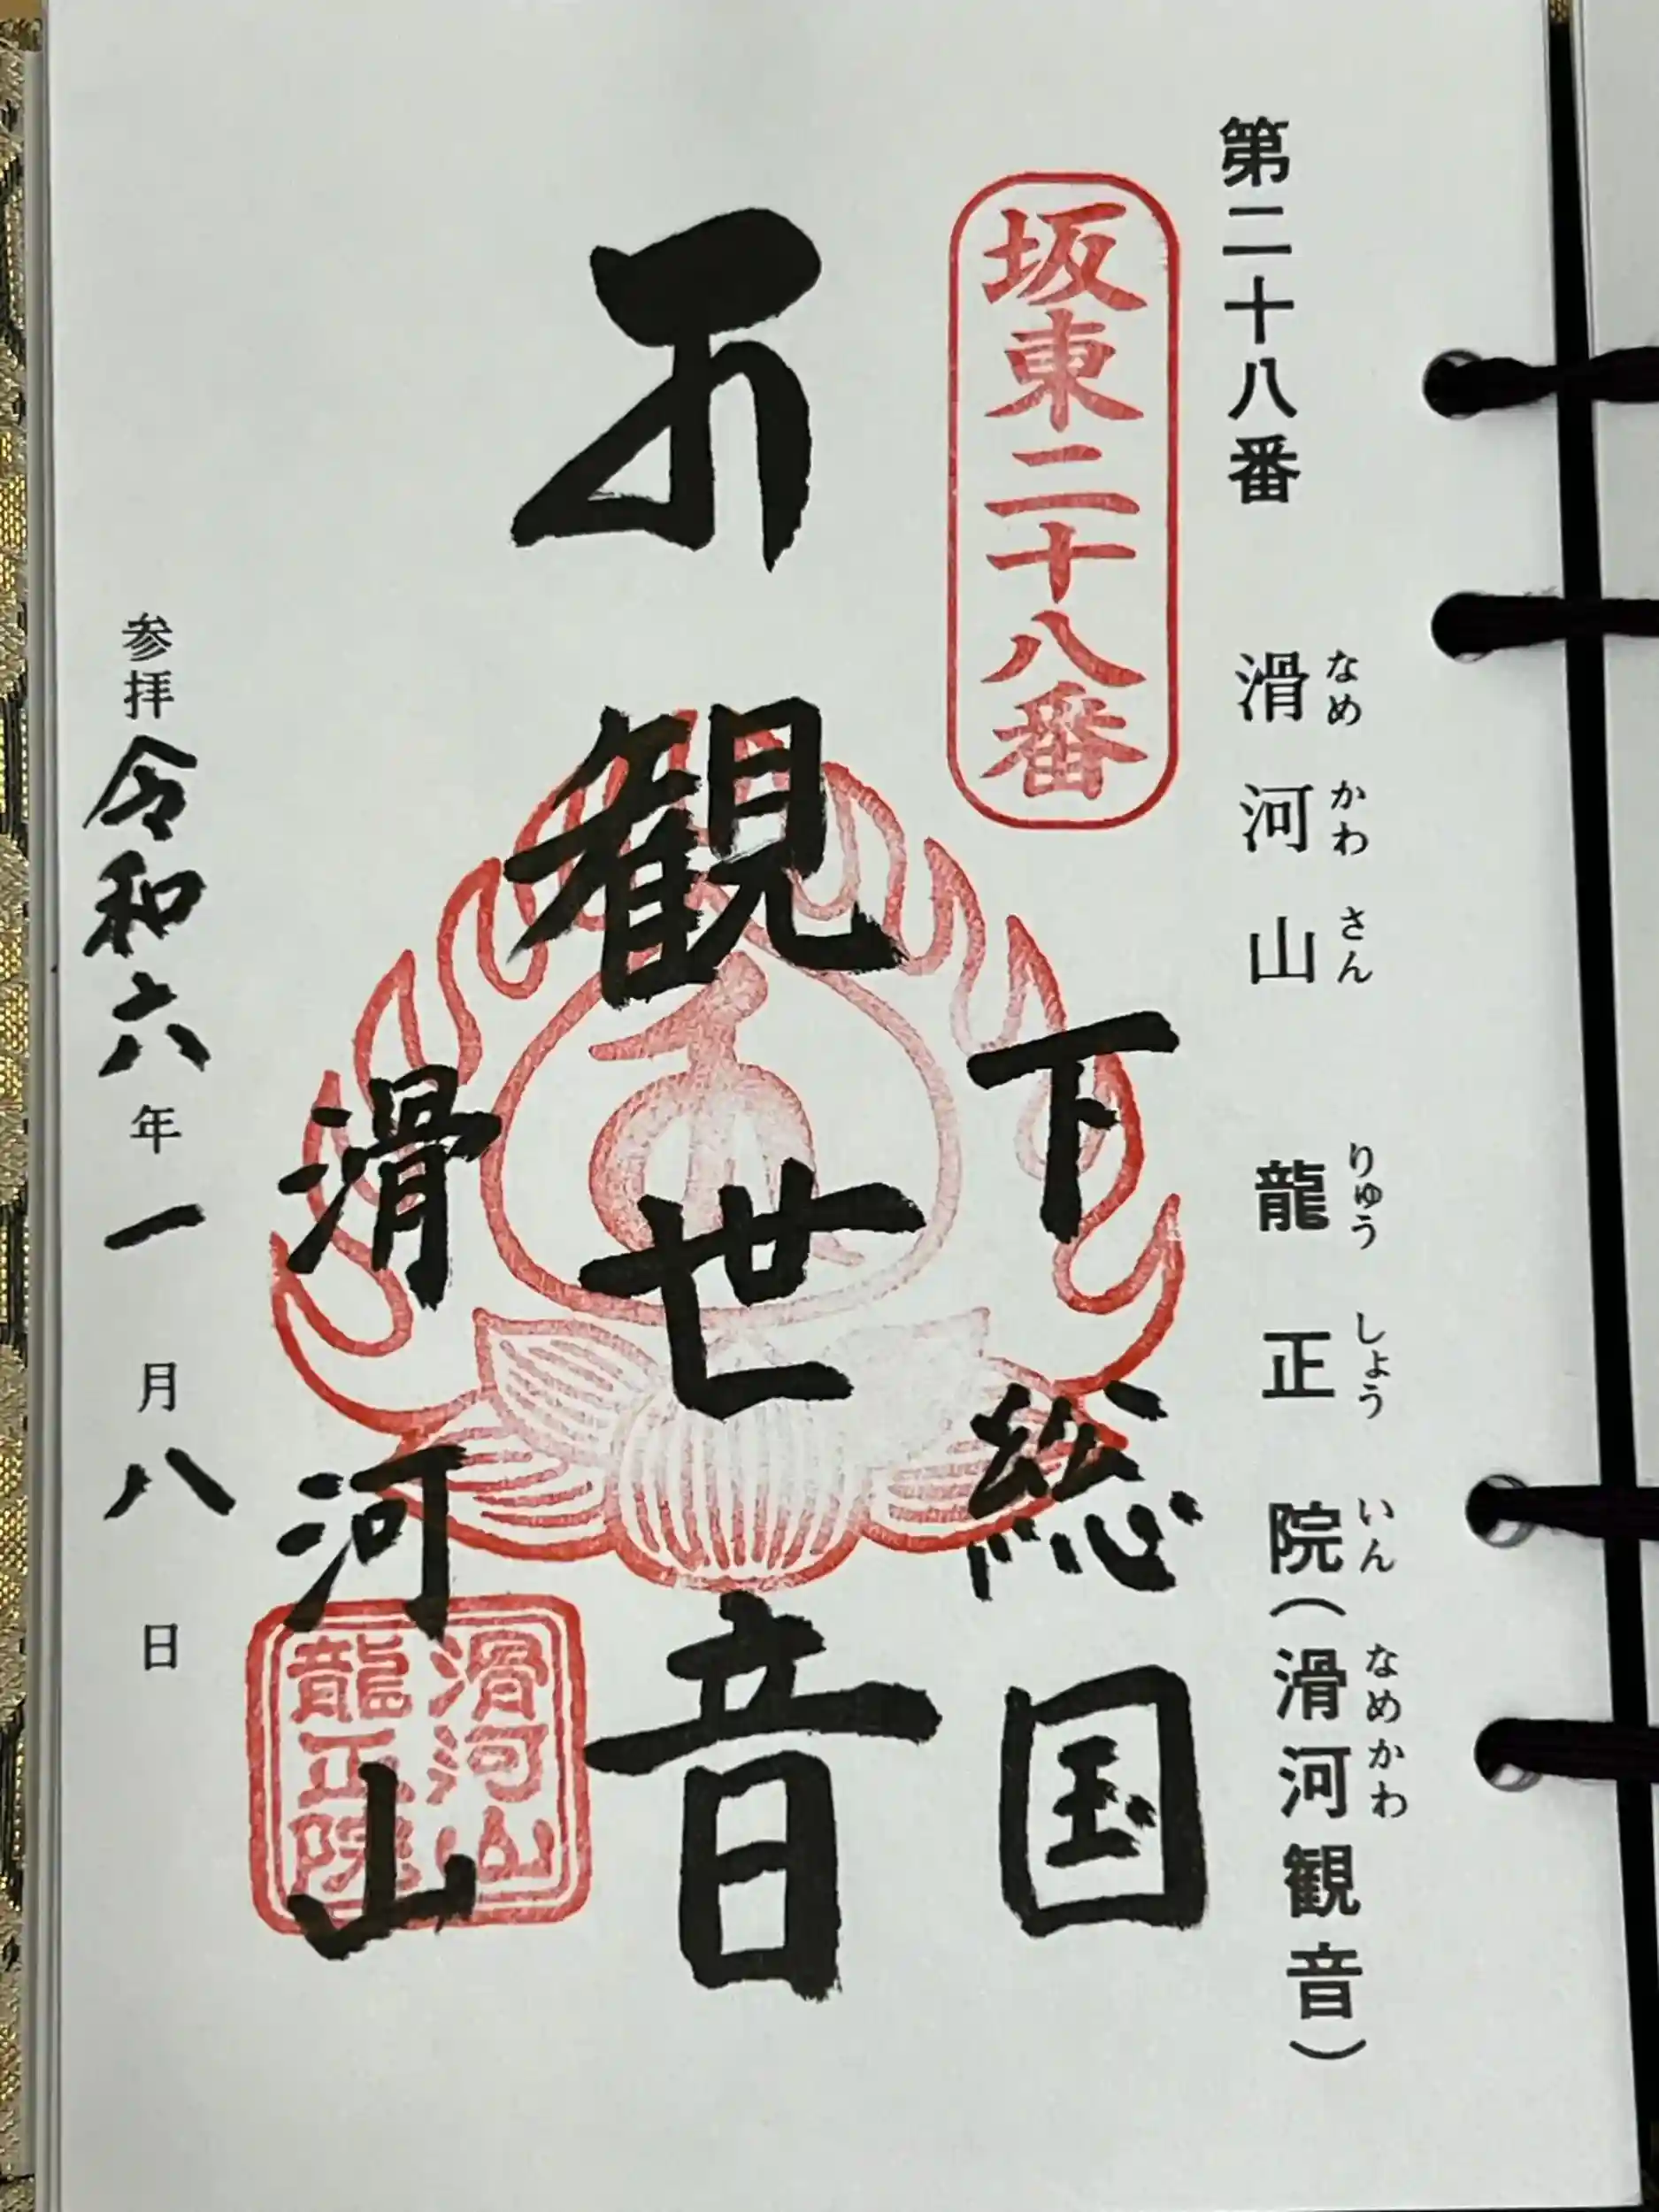 第二十八番 滑河山 龍正院(滑河観音)
なめ かわ さん りゅう しょう いん なめかわ
坂東二十八番
下総国
観世音
滑河山
滑河山
龍正院
参拝 令和六年一月八日